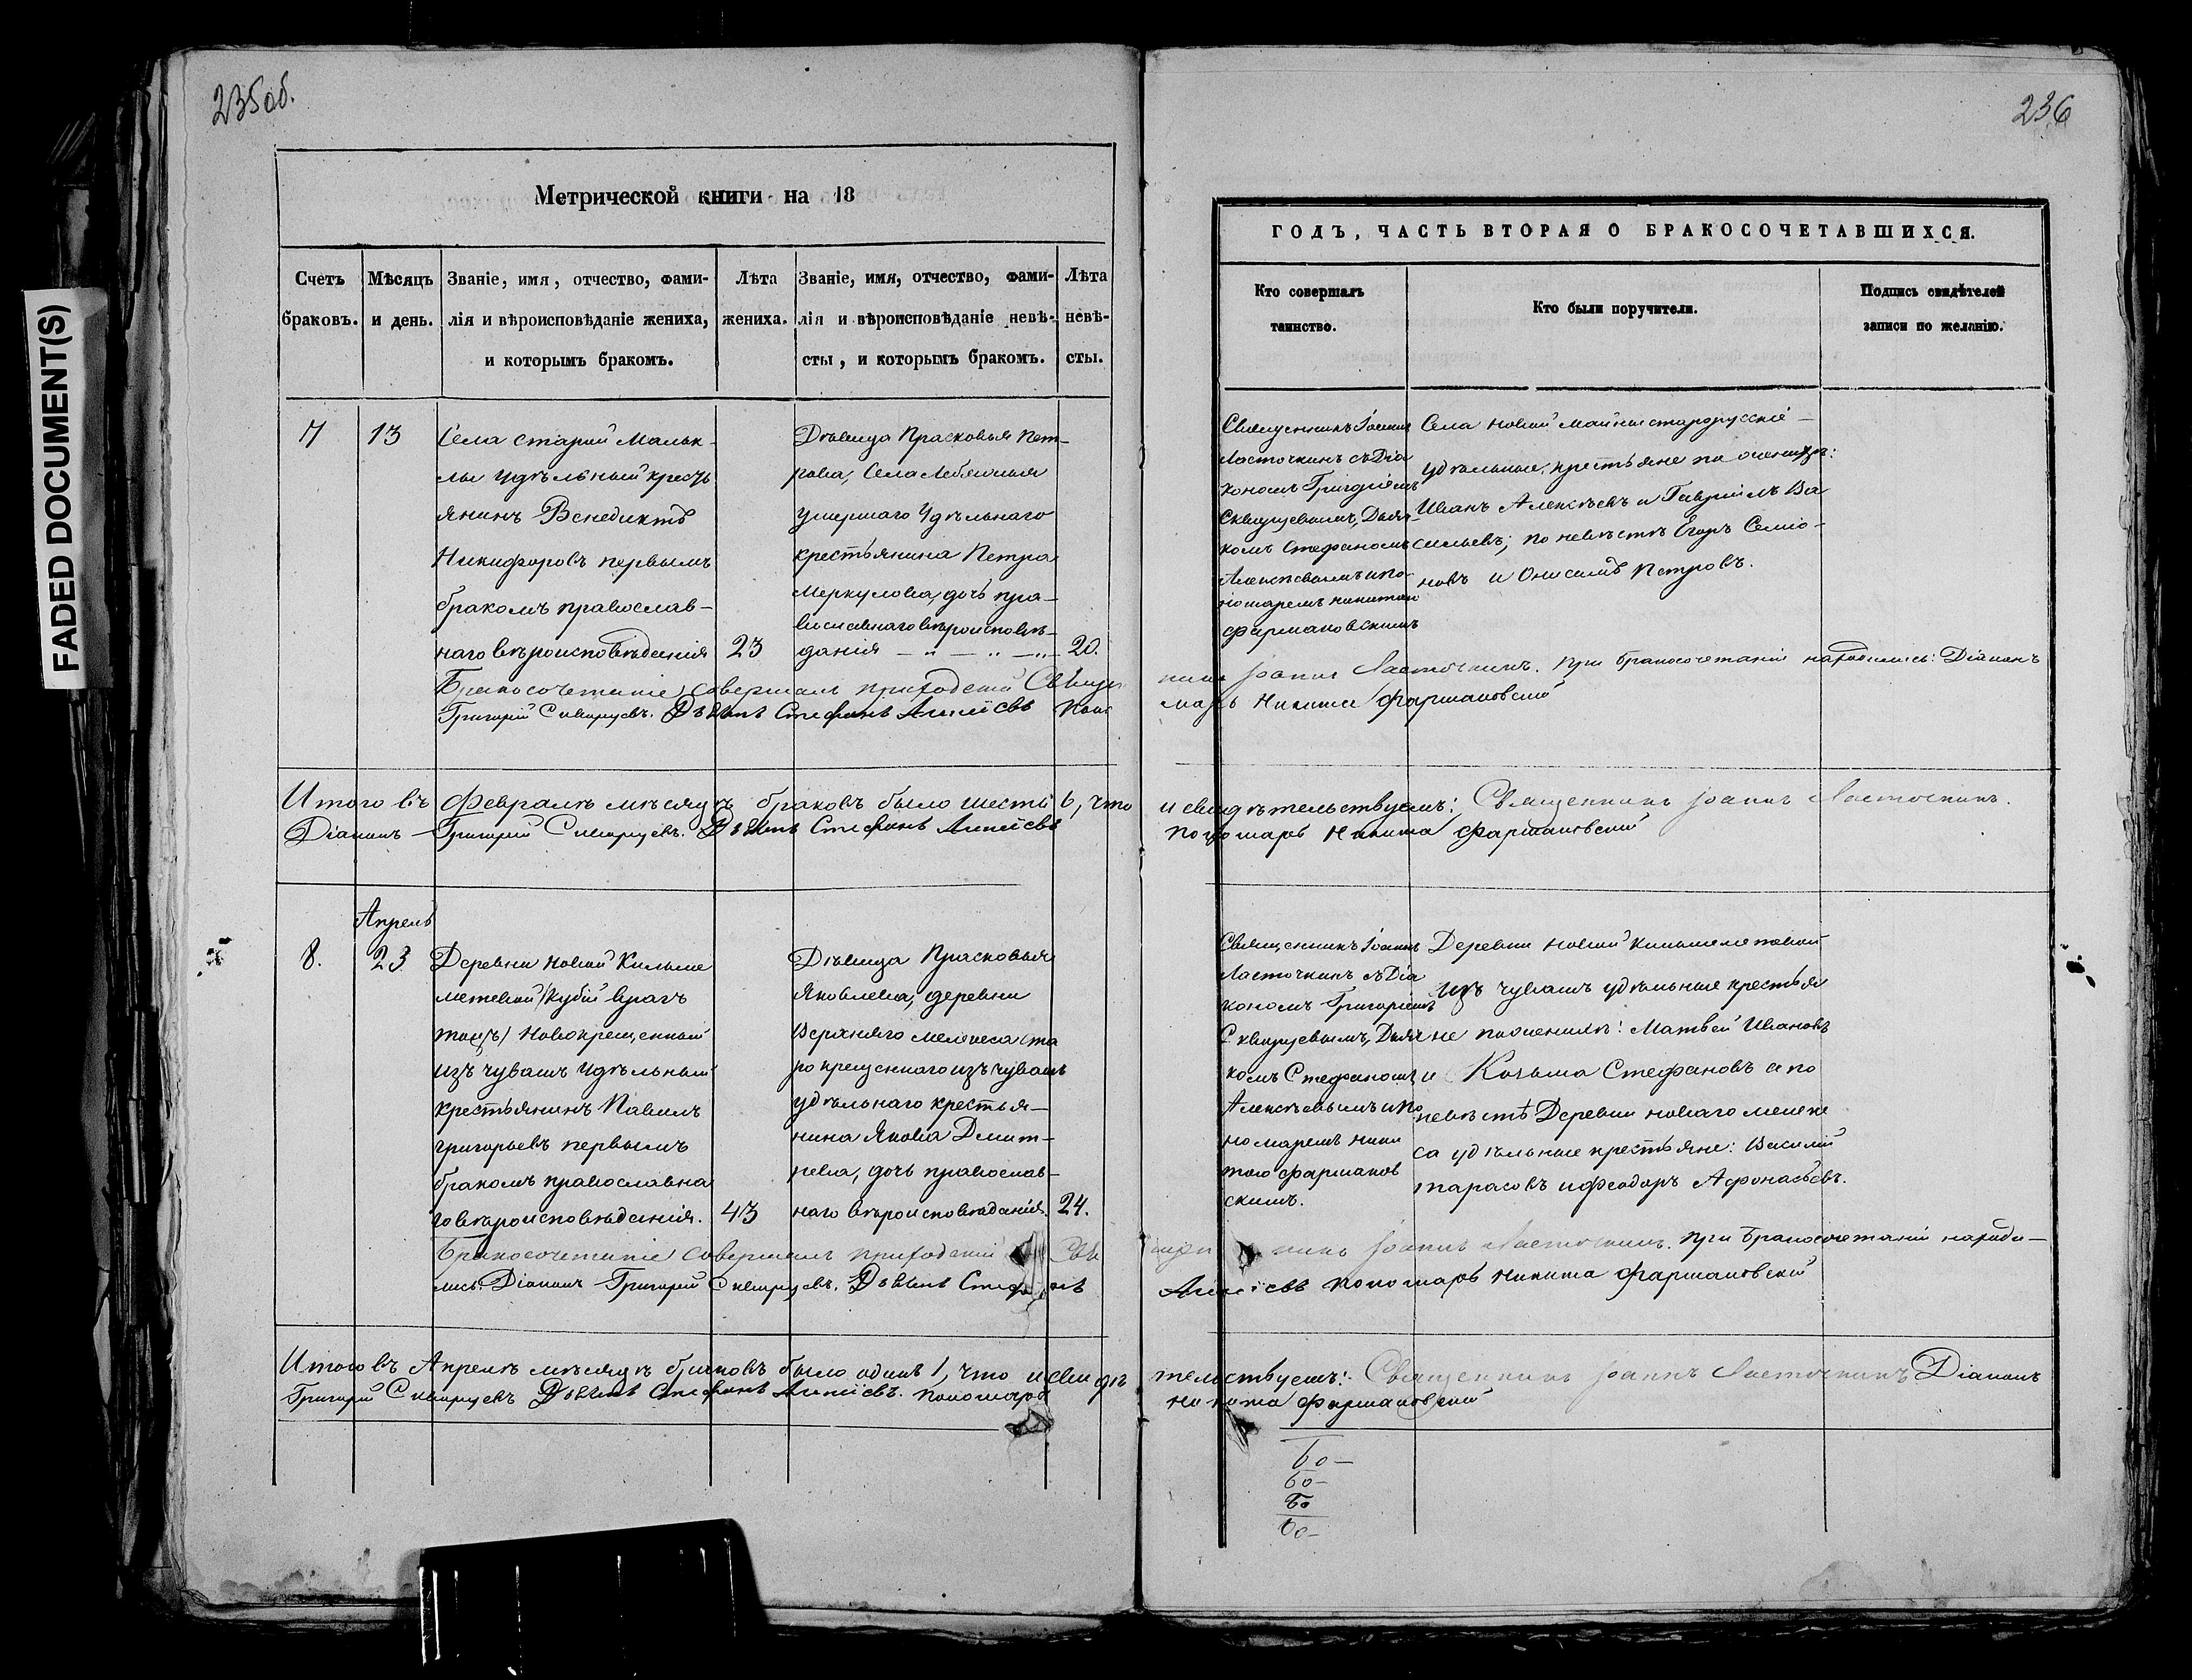 235 об.
Метрической книги на 18
Счетъ браковъ.
Мѣсяцъ и день.
Званіе, имя, отчество, фами-
лія и вѣроисповѣданіе жениха,
и которымъ бракомъ.
Лѣта
жениха.
Званіе, имя, отчество, фами-
лія и вѣроисповѣданіе невѣ-
сты, и которымъ бракомъ.
Лѣта
невѣ-
сты.
7
13
Села старой Маньк-
лы удѣльный кресть
янинъ Венедиктъ
Никифоровъ первымъ
бракомъ православ-
наго вѣроисповѣданія
23
Дѣвица Прасковья Пет-
рова, Села Лебяжья
умершаго Удѣльнаго
крестьянина Петра
Меркулова, дочь пра-
вославнаго вѣроисповѣ-
данія
20.
Бракосочетаніе совершалъ приходскій Свяще
Григорій Сквирцевъ. Дьячекъ Стефанъ Алексіевъ Поно
Итого въ Февралѣ мѣсяцѣ браковъ было шесть 6, что
Діаконъ Григорій Сквирцевъ. Дьячекъ Стефанъ Алексіевъ
Апрель
8.
23
Деревни Новой Кильме
метевой /Кубій врагъ
тожъ/ новокрещенный
изъ чувашъ Удѣльный
крестьянинъ Павелъ
григорьевъ первымъ
бракомъ православна
го вѣроисповѣданія.
43
Дѣвица Прасковья
Яковлева, деревни
Верхняго мелекеса ста
рокрещеннаго изъ чувашъ
удѣльнаго крестья-
нина Якова Дмит-
ріева, дочь православ-
наго вѣроисповѣданія.
24.
Бракосочетаніе совершалъ приходскій Свя
лись: Діаконъ Григорій Сквирцевъ. Дьячекъ Стефанъ
Итого въ Апрелѣ мѣсяцѣ браковъ было одинъ 1, что и свидѣ
Григорій Сквирцевъ Дьячекъ Стефанъ Алексіевъ. пономарь
236
ГОДЪ, ЧАСТЬ ВТОРАЯ О БРАКОСОЧЕТАВШИХСЯ.
Кто совершалъ
таинство.
Кто были поручители.
Подпись свидѣтелей
записи по желанію.
Священникъ Іоаннъ
Ласточкинъ съ Діа
кономъ Григоріемъ
Сквирцевымъ, Дьяч-
комъ Стефаномъ
Алексѣевымъ и по-
номаремъ никитою
фармаковскимъ
Села новой майны старорусскіе
удѣльные крестьяне по женихѣ:
Иванъ Алексѣевъ и Гавріилъ Ва
сильевъ; по невѣстѣ Егоръ Семіо-
новъ и Онисимъ Петровъ.
никъ Іоаннъ Ласточкинъ. При бракосочетаніи находились: Діаконъ
марь Никита фармаковскій
и свидѣтельствуемъ: Священникъ Іоаннъ Ласточкинъ.
Пономарь Никита фармаковскій
Священникъ Іоаннъ
Ласточкинъ съ Діа
кономъ Григоріемъ
Сквирцевымъ, Дьяч
комъ Стефаномъ
Алексѣевымъ и по
номаремъ ники
тою фармаков
скимъ.
Деревни новой кильмеметевой
изъ чувашъ удѣльные крестья
не по женихѣ: Матвѣй Ивановъ
и Козьма Стефановъ а по
невѣстѣ Деревни новаго мелеке
са удѣльные крестьяне: Василій
тарасовъ и феодоръ Афонасьевъ.
никъ Іоаннъ Ласточкинъ. при бракосочетаніи находи-
Алексіевъ пономарь никита фармаковскій
тельствуемъ: Священникъ Іоаннъ Ласточкинъ Діаконъ
никита фармаковскій
60-
60-
60
60-
FADED DOCUMENT(S)